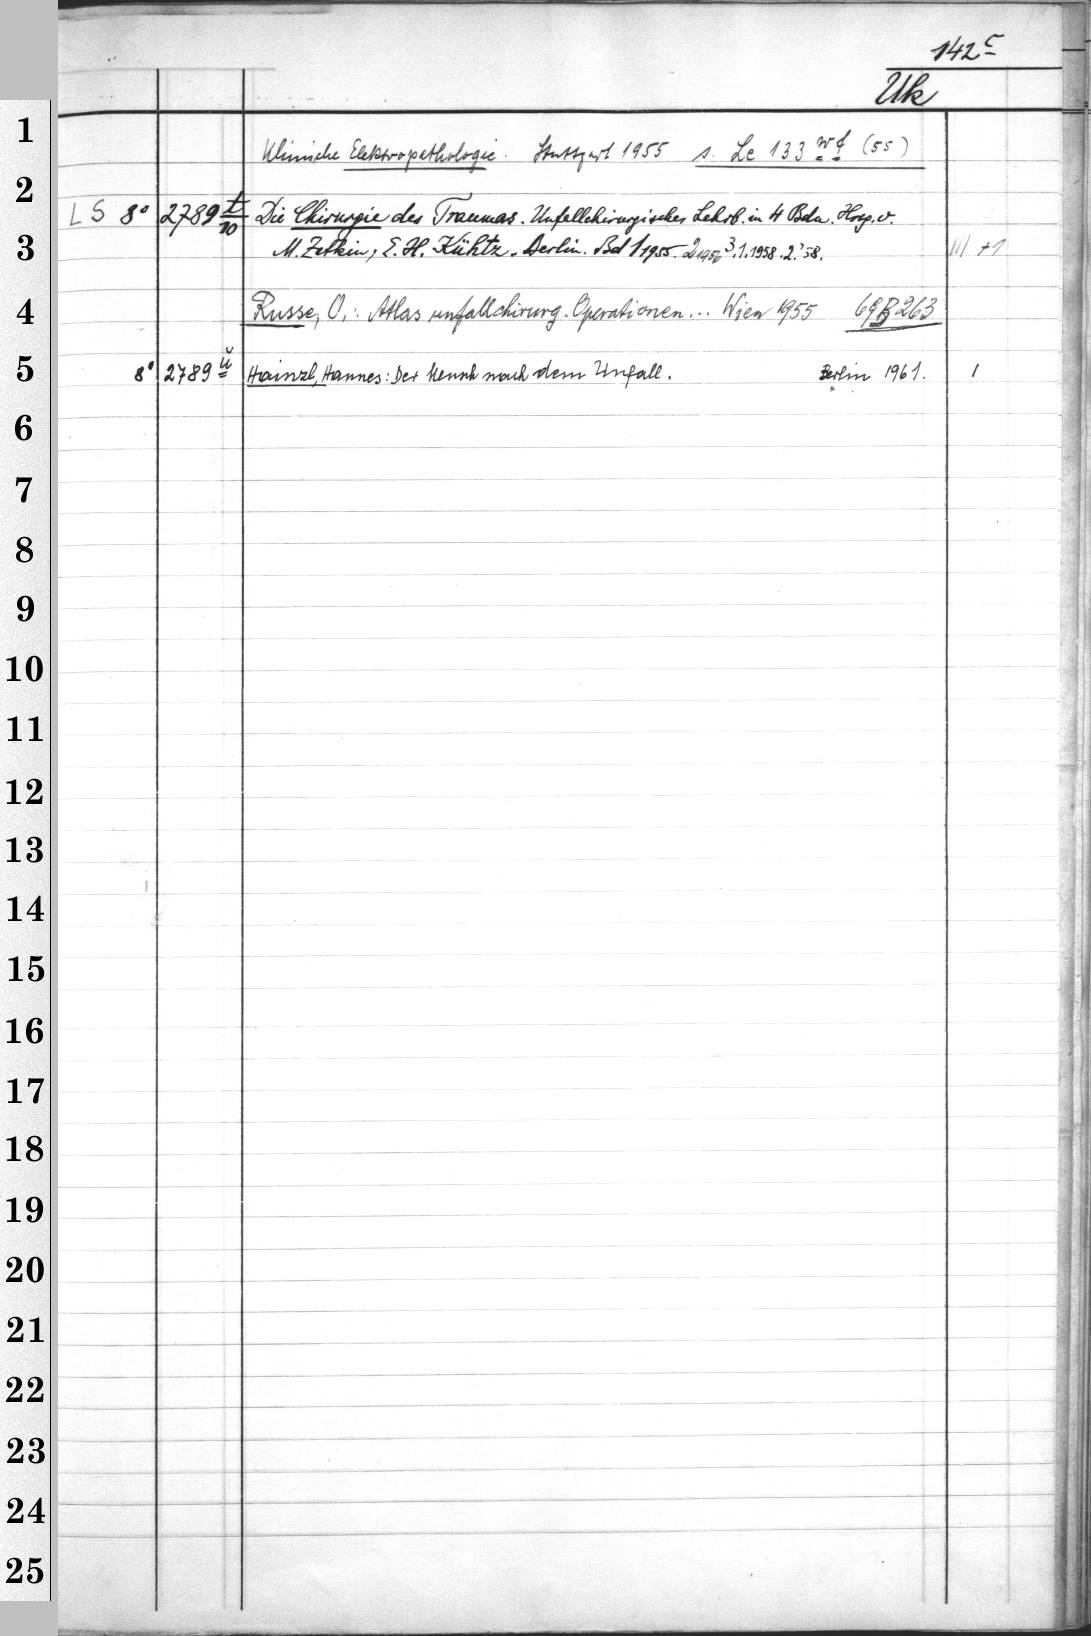 142c
Uk
1
Klinische Elektropathologie. Stuttgart 1955 s. Le 133 wf (55)
2
LS 8° 2789 t/10 Die Chirurgie des Traumas. Unfallchirurgisches Lehrb. in 4 Bdn. Hrsg. v.
3
M. Zetkin, E. H. Kühtz. Berlin. Bd 1 1955. 2 1956 3.1.1958. 2.'58. III +1
4
Russe, O.: Atlas unfallchirurg. Operationen... Wien 1955 69 B 263
5
8° 2789 ü Hainzl, Hannes: Der Mensch nach dem Unfall. Berlin 1961. 1
6
7
8
9
10
11
12
13
14
15
16
17
18
19
20
21
22
23
24
25